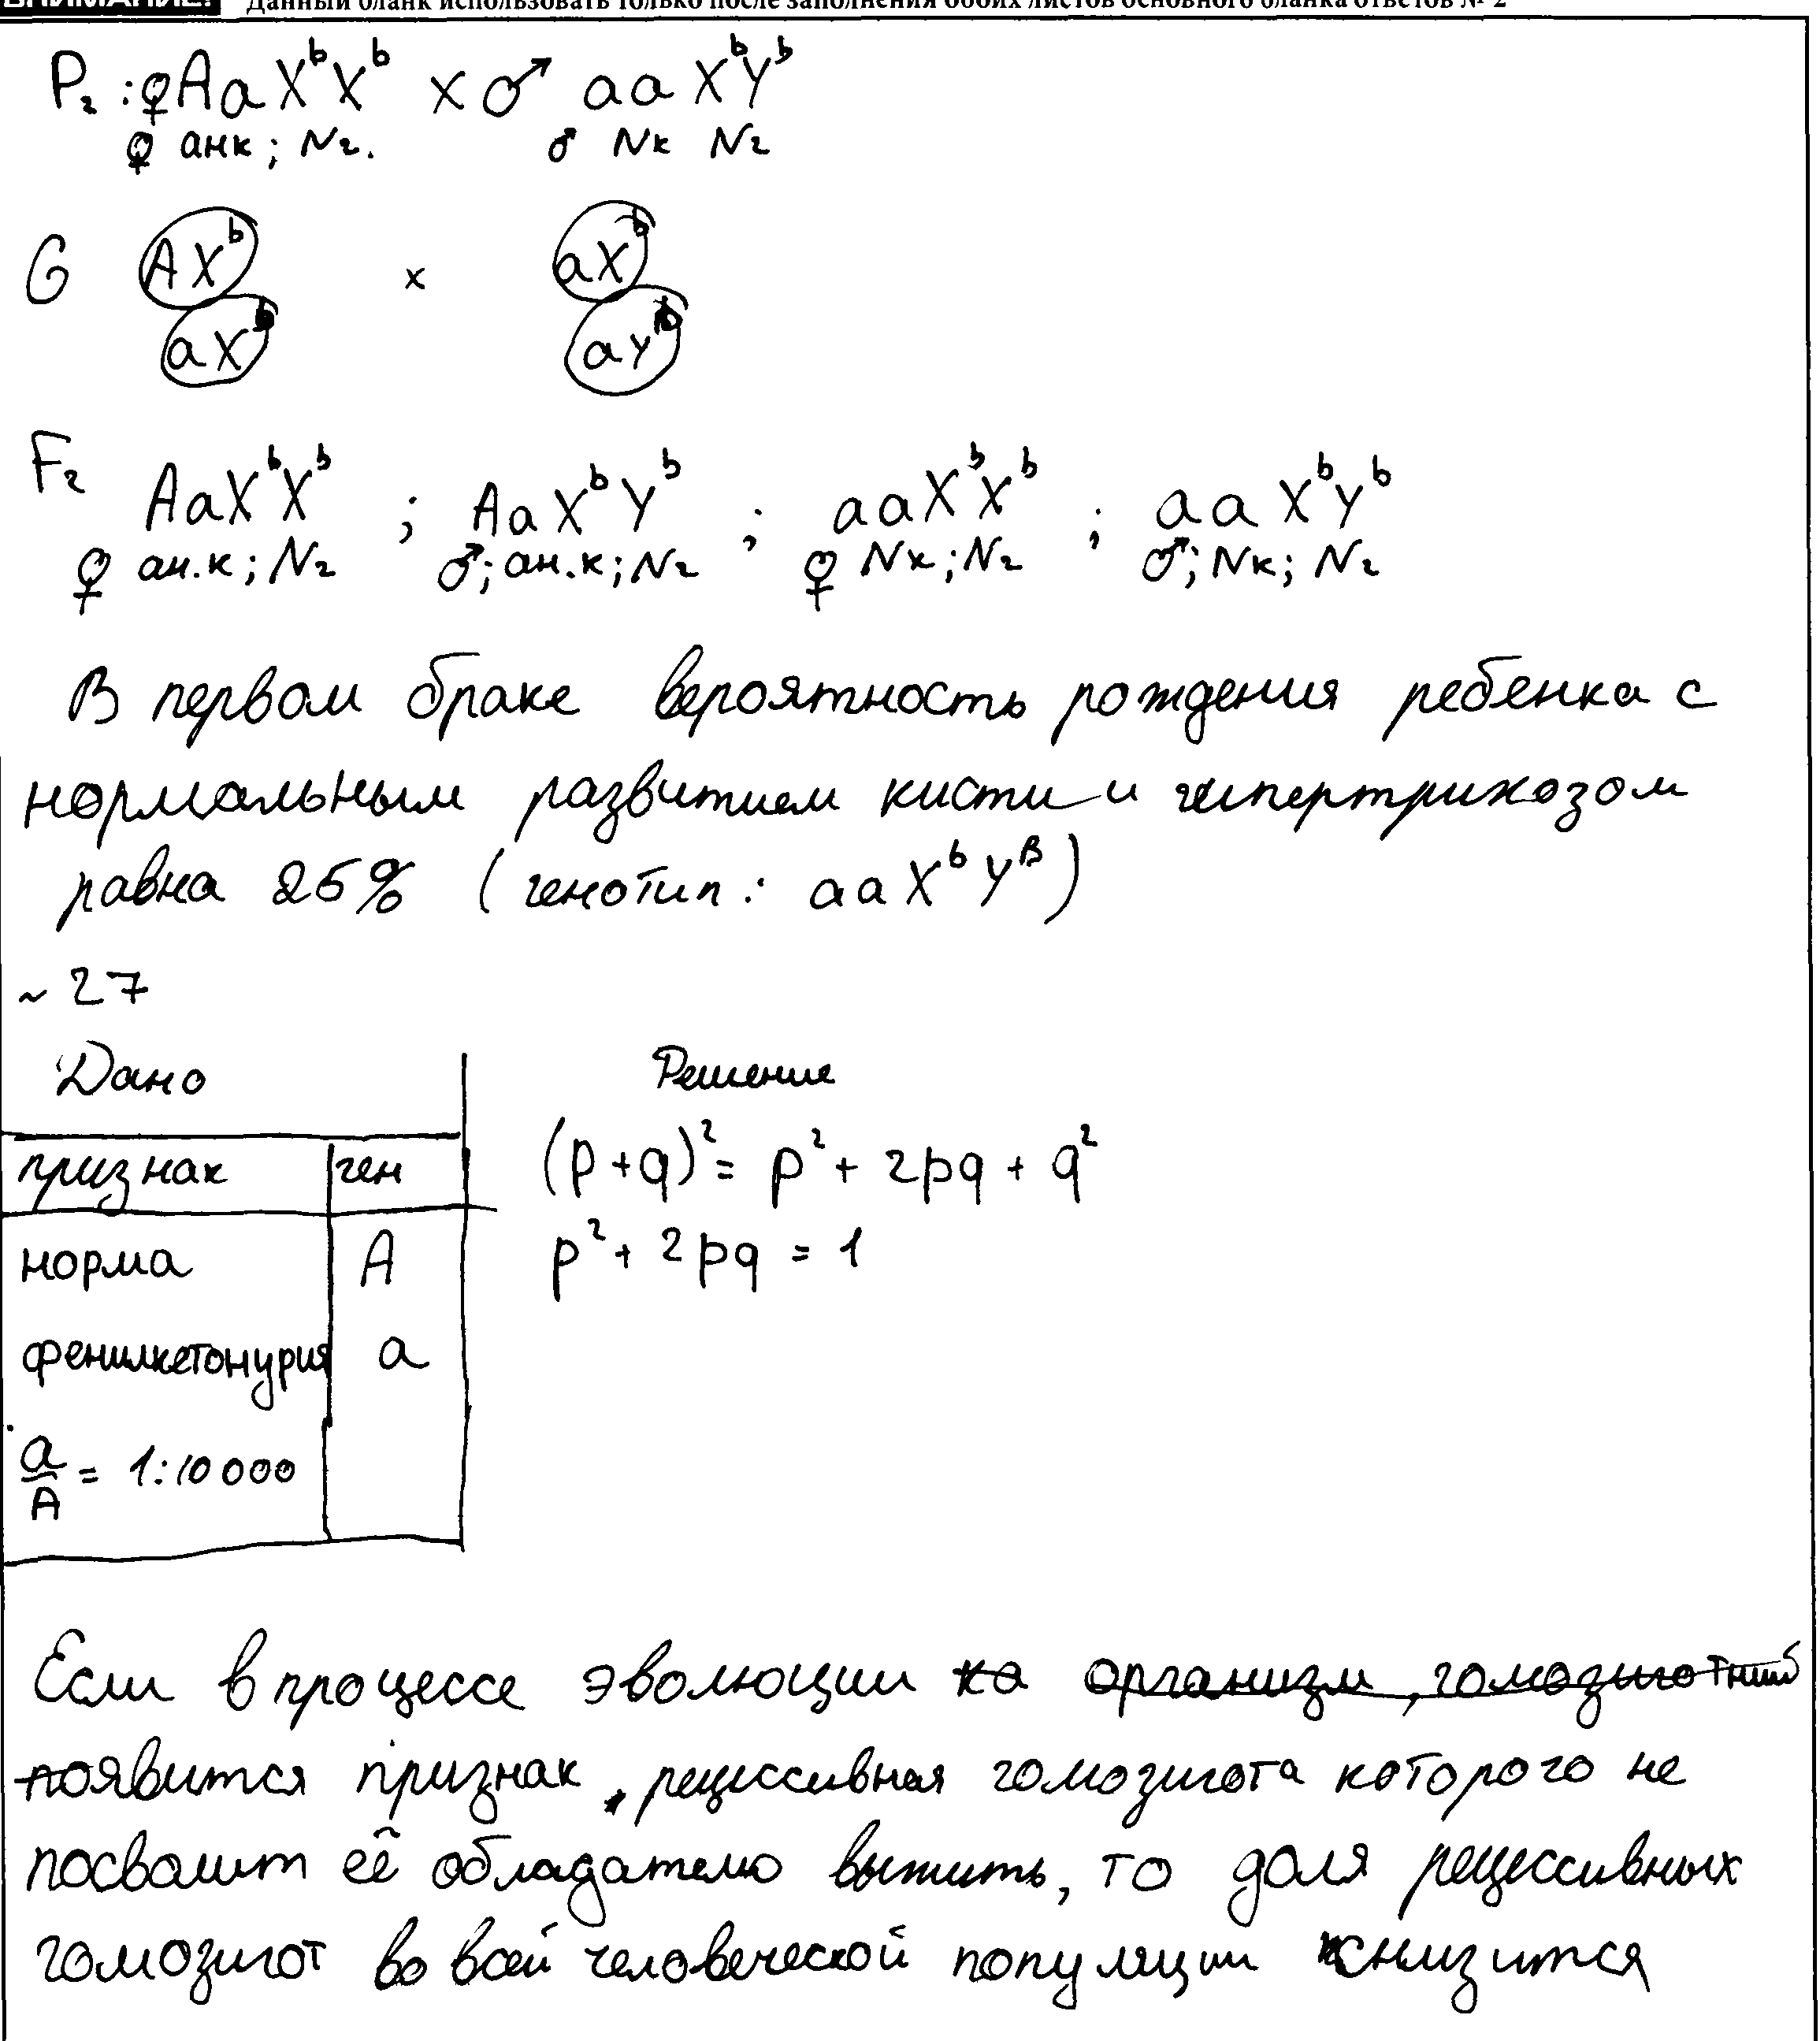 ВНИМАНИЕ! Данный бланк использовать только после заполнения обоих листов основного бланка ответов № 2
P₂ : ♀ Aa XᵇXᵇ x ♂ aa XᵇYᵇ
♀ анк ; N₂. ♂ Nк N₂
G AXᵇ x aXᵇ
aXᵇ aYᵇ
F₂ AaXᵇXᵇ ; AaXᵇYᵇ ; aaXᵇXᵇ ; aaXᵇYᵇ
♀ ан.к ; N₂ ♂; ан.к; N₂ ♀ Nк; N₂ ♂; Nк; N₂
В первом браке вероятность рождения ребенка с
нормальным развитием кисти и гипертрихозом
равна 25% ( генотип : aaXᵇYᴮ)
~ 27
Дано Решение
признак ген (p+q)² = p² + 2pq + q²
норма A p² + 2pq = 1
фенилкетонурия a
a/A = 1:10 000
Если в процессе эволюции ка организм, гомозиготный
появится признак, рецессивная гомозигота которого не
посволит её обладателю выжить, то доля рецессивных
гомозигот во всей человеческой популяции снизится